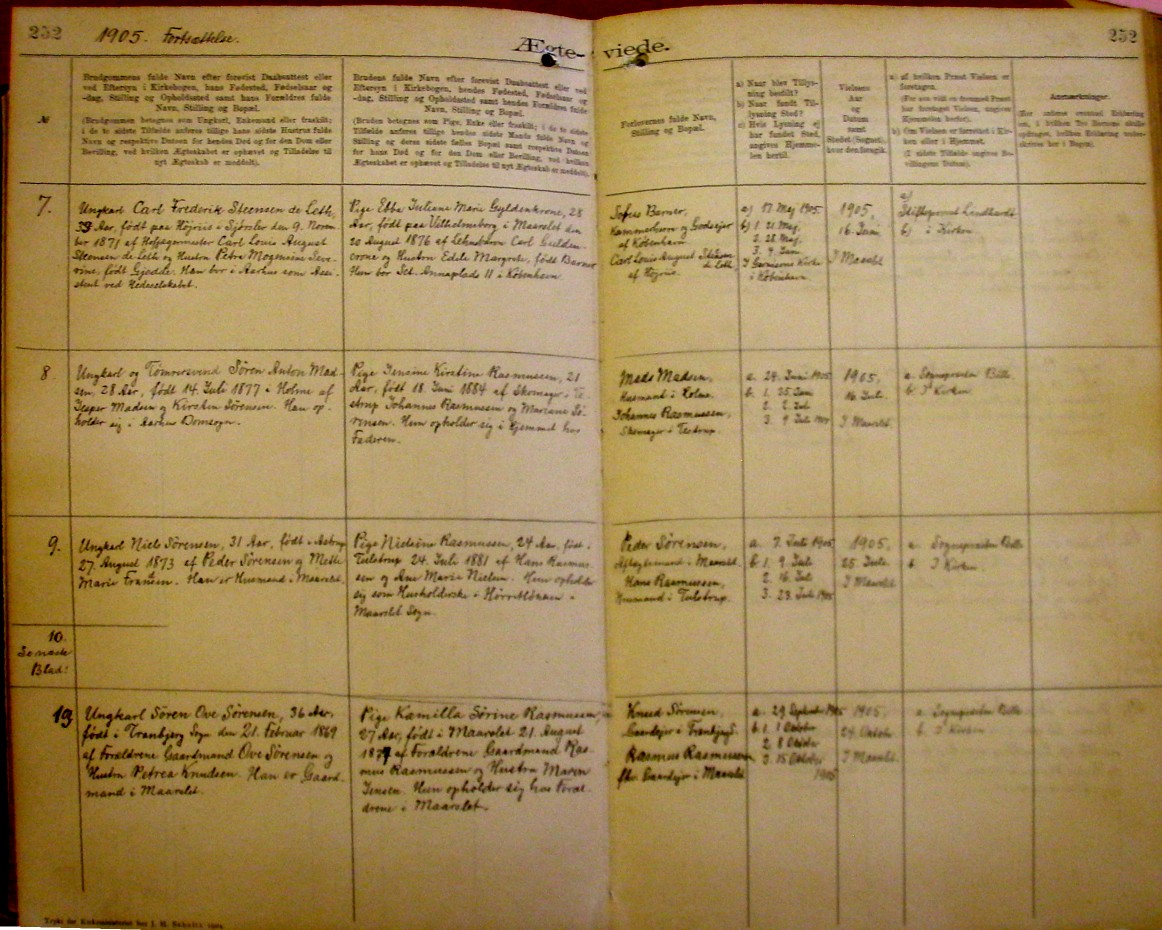 252
1905. Fortsættelse.
Ægte-
viede.
252
№
Brudgommens fulde Navn efter forevist Daabsattest eller
ved Eftersyn i Kirkebogen, hans Fødested, Fødselsaar og
-dag, Stilling og Opholdssted samt hans Forældres fulde
Navn, Stilling og Bopæl.
(Brudgommen betegnes som Ungkarl, Enkemand eller fraskilt;
i de to sidste Tilfælde anføres tillige hans sidste Hustrus fulde
Navn og respektive Datoen for hendes Død og for den Dom eller
Bevilling, ved hvilken Ægteskabet er ophævet og Tilladelse til
nyt Ægteskab er meddelt).
Brudens fulde Navn efter forevist Daabsattest eller ved
Eftersyn i Kirkebogen, hendes Fødested, Fødselsaar og
-dag, Stilling og Opholdssted samt hendes Forældres fulde
Navn, Stilling og Bopæl.
(Bruden betegnes som Pige, Enke eller fraskilt; i de to sidste
Tilfælde anføres tillige hendes sidste Mands fulde Navn og
Stilling og deres sidste fælles Bopæl samt respektive Datoen
for hans Død og for den Dom eller Bevilling, ved hvilken
Ægteskabet er ophævet og Tilladelse til nyt Ægteskab er meddelt).
Forlovernes fulde Navn,
Stilling og Bopæl.
a) Naar blev Tillys-
ning bestilt?
b) Naar fandt Til-
lysning Sted?
c) Hvis Lysning ej
har fundet Sted,
angives Hjemme-
len hertil.
Vielsens
Aar
og
Datum
samt
Stedet (Sognet),
hvor den foregik.
a) af hvilken Præst Vielsen er
foretagen.
(For saa vidt en fremmed Præst
har foretaget Vielsen, angives
Hjemmelen herfor).
b) Om Vielsen er forrettet i Kir-
ken eller i Hjemmet.
(I sidste Tilfælde angives Be-
villingens Datum).
Anmærkninger.
(Her anføres eventuel Erklæring
om, i hvilken Tro Børnene skulle
opdrages, hvilken Erklæring under-
skrives her i Bogen).
7.
Ungkarl Carl Frederik Steensen de Leth,
33 Aar, født paa Højriis i Sjørslev den 9. Novem
ber 1871 af Hofjægermester Carl Louis August
Steensen de Leth og Hustru Petra Mogensine Seve-
rine, født Gjedde. Han bor i Aarhus som Assi-
stent ved Hedeselskabet.
Pige Ebba Juliane Marie Gyldenkrone, 28
Aar, født paa Vilhelmsborg i Maarslet den
20 August 1876 af Lehnsbaron Carl Gulden-
crone og Hustru Edele Margrete, født Barner
Hun bor Sct. Annaplads 11 i København.
Sofus Barner,
Kammerherre og Godsejer
af København
Carl Louis August Steensen
de Leth,
af Højriis.
a) 17 Maj 1905.
b) 1. 21 Maj.
2. 28. Maj.
3. 4. Juni
I Garnisons Kirke
i København
1905,
16 Juni,
I Maarslet
a)
Stiftsprovst Lindhardt
b) i Kirken
8
Ungkarl og Tømrersvend Sören Anton Mad-
sen, 28 Aar, født 14. Juli 1877 i Holme af
Jesper Madsen og Kirsten Sørensen. Han op-
holder sig i Aarhus Domsogn.
Pige Jensine Kirstine Rasmussen, 21
Aar, født 18 Juni 1884 af Skomager i Te-
strup Johannes Rasmussen og Mariane Sö-
rensen. Hun opholder sig i Hjemmet hos
Faderen.
Mads Madsen,
Husmand i Holme.
Johannes Rasmussen,
Skomager i Testrup.
a. 24. Juni 1905
b. 1. 25. Juni
2. 2. Juli
3. 9 Juli 1905
1905,
16 Juli.
I Maarslet.
a. Sognepræsten Bille.
b. I Kirken
9.
Ungkarl Niels Sörensen, 31 Aar, født i Astrup
27. August 1873 af Peder Sørensen og Mette
Marie Frantsen. Han er Husmand i Maarslet.
Pige Nielsine Rasmussen, 24 Aar, født i
Tulstrup 24. Juli 1881 af Hans Rasmus-
sen og Ane Marie Nielsen. Hun opholder
sig som Husholderske i
Maarslet Sogn.
Peder Sørensen,
Aftægtsmand i Maarslet.
Hans Rasmussen,
Husmand i Tulstrup.
a. 7. Juli 1905
b. 1. 9 Juli
2. 16 Juli
3. 23. Juli 1905
1905.
25 Juli.
I Maarslet
a. Sognepræsten Bille
b I Kirken.
10.
Se næste
Blad!
13
Ungkarl Sören Ove Sörensen, 36 Aar,
født i Tranbjerg Sogn den 21. Februar 1869
af Forældrene Gaardmand Ove Sörensen og
Hustru Petrea Knudsen. Han er Gaard-
mand i Maarslet.
Pige Kamilla Sörine Rasmussen,
27 Aar, født i Maarslet 21. August
1877 af Forældrene Gaardmand Ras-
mus Rasmussen og Hustru Maren
Jensen. Hun opholder sig hos Foræl-
drene i Maarslet.
Knud Sørensen,
Gaardejer i Tranbjerg S.
Rasmus Rasmussen
fhv. Gaardejer i Maarslet
a. 29. September 1905
b. 1. 1 Oktober
2. 8 Oktober
3. 15 Oktober
1905
1905.
24 Oktober
I Maarslet
a. Sognepræsten Bille
b. I Kirken.
Trykt for Kirkeministeriet hos J. H. Schultz